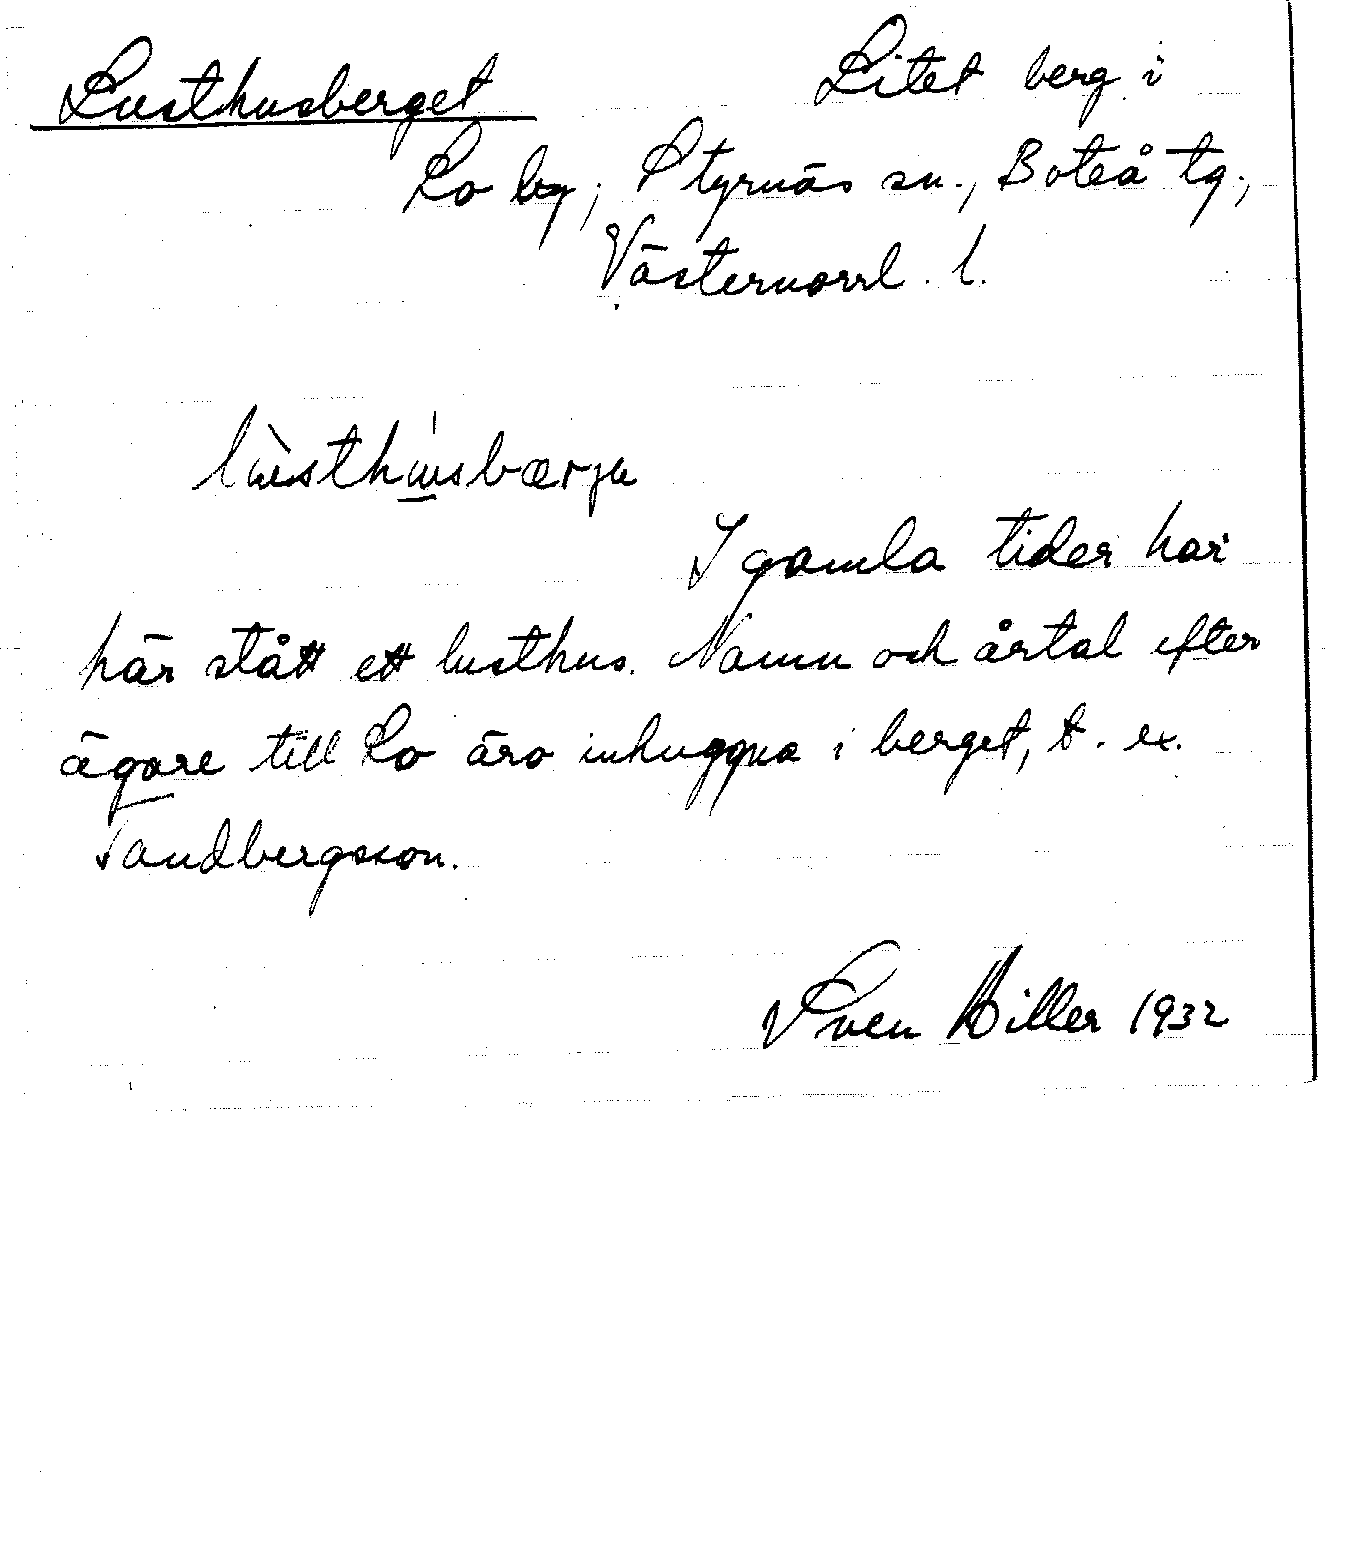 Lusthusberget Litet berg i
Lo by, Styrnäs sn., Boteå tg.,
Västernorrl. l.
lùsthúsbærja
I gamla tider har
här stått ett lusthus. Namn och årtal efter
ägare till Lo äro inhuggna i berget, t. ex.
Tandbergsson.
Sven Hiller 1932